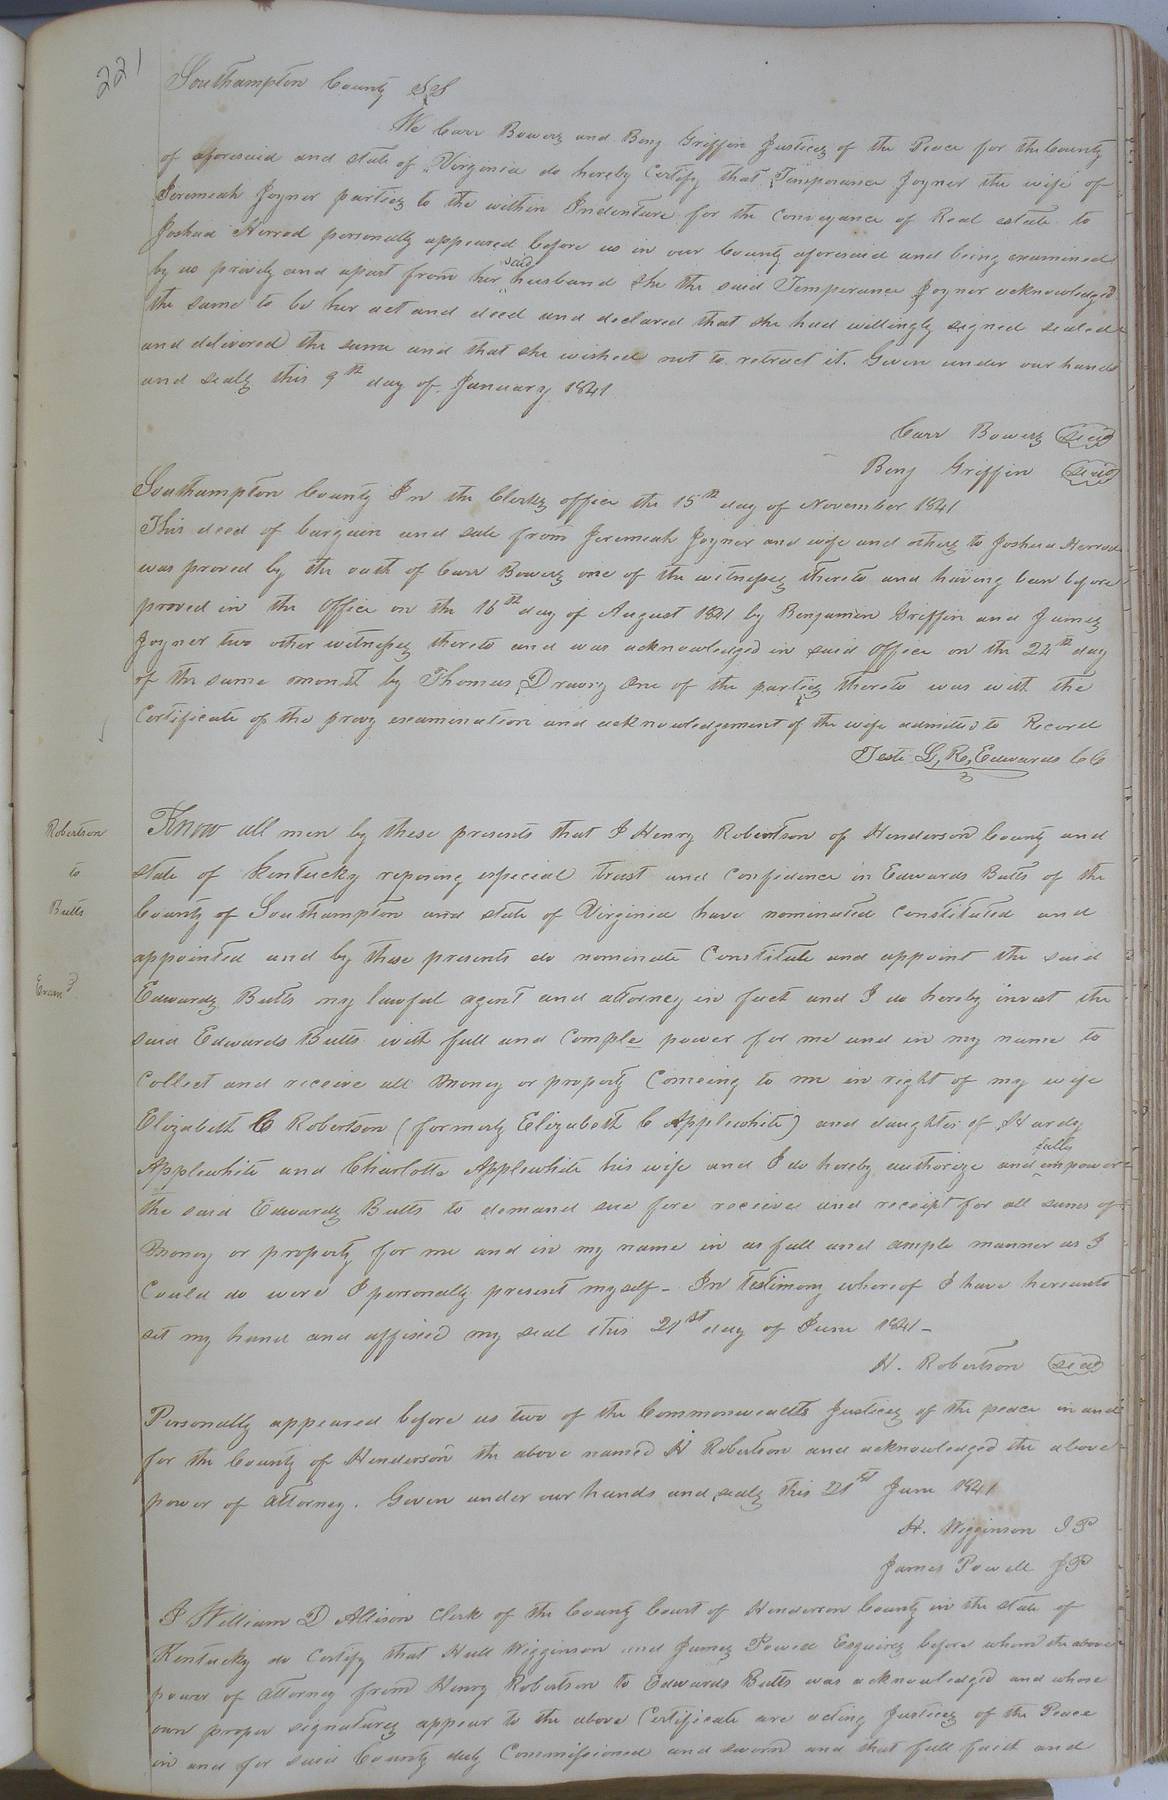 221
Southampton County SS
We Carr Bowers and Benj Griffin Justices of the Peace for the County
of aforesaid and state of Virginia do hereby Certify that Temperance Joyner the wife of
Jeremiah Joyner parties to the within Indenture for the Conveyance of Real estate to
Joshua Herrod personally appeared before us in our County aforesaid and being examined
by us privily and apart from her said husband She the said Temperance Joyner acknowledged
the same to be her act and deed and declared that she had willingly signed sealed
and delivered the same and that she wished not to retract it. Given under our hands
and seals this 9th day of January 1841
Carr Bowers seal
Benj Griffin seal
Southampton County In the Clerks office the 15th day of November 1841
This deed of bargain and sale from Jeremiah Joyner and wife and others to Joshua Herrod
was proved by the oath of Carr Bowers one of the witnesses thereto and having been before
proved in the Office on the 16th day of August 1841 by Benjamin Griffin and James
Joyner two other witnesses thereto and was acknowledged in said Office on the 24th day
of the same month by Thomas Drewry One of the parties thereto was with the
Certificate of the privy examination and acknowledgement of the wife admitted to Record
Teste L, R, Edwards CC
Robertson
to
Butts
Know all men by these presents that I Henry Robertson of Henderson County and
state of Kentucky reposing especial trust and Confidence in Edwards Butts of the
County of Southampton and state of Virginia have nominated Constituted and
appointed and by these presents do nominate Constitute and appoint the said
Edwards Butts my lawful agent and attorney in fact and I do hereby invest the
said Edwards Butts with full and Comple power for me and in my name to
Collect and receive all money or property Comeing to me in right of my wife
Elizabeth C Robertson (formerly Elizabeth C Applewhite) and daughter of Hardy
Applewhite and Charlotte Applewhite his wife and I do hereby authorize and fully empower
the said Edwards Butts to demand sue fore receive and receipt for all sums of
Money or property for me and in my name in as full and ample manner as I
Could do were I personally present myself - In Testimony whereof I have hereunto
set my hand and affixed my seal this 21st day of June 1841 -
H. Robertson seal
Personally appeared before us two of the Commonwealths Justices of the peace in and
for the County of Henderson the above named H Robertson and acknowledged the above
power of attorney. Given under our hands and seals this 21st June 1841
H. Wigginson JP
James Powell JP
I William D Allison Clerk of the County Court of Henderson County in the state of
Kentucky do Certify that Hull Wigginson and James Powell Esquires before whom the above
power of attorney from Henry Robertson to Edwards Butts was acknowledged and whose
own proper signatures appear to the above Certificate are acting Justices of the Peace
in and for said County duly Commissioned and sworn and that full faith and